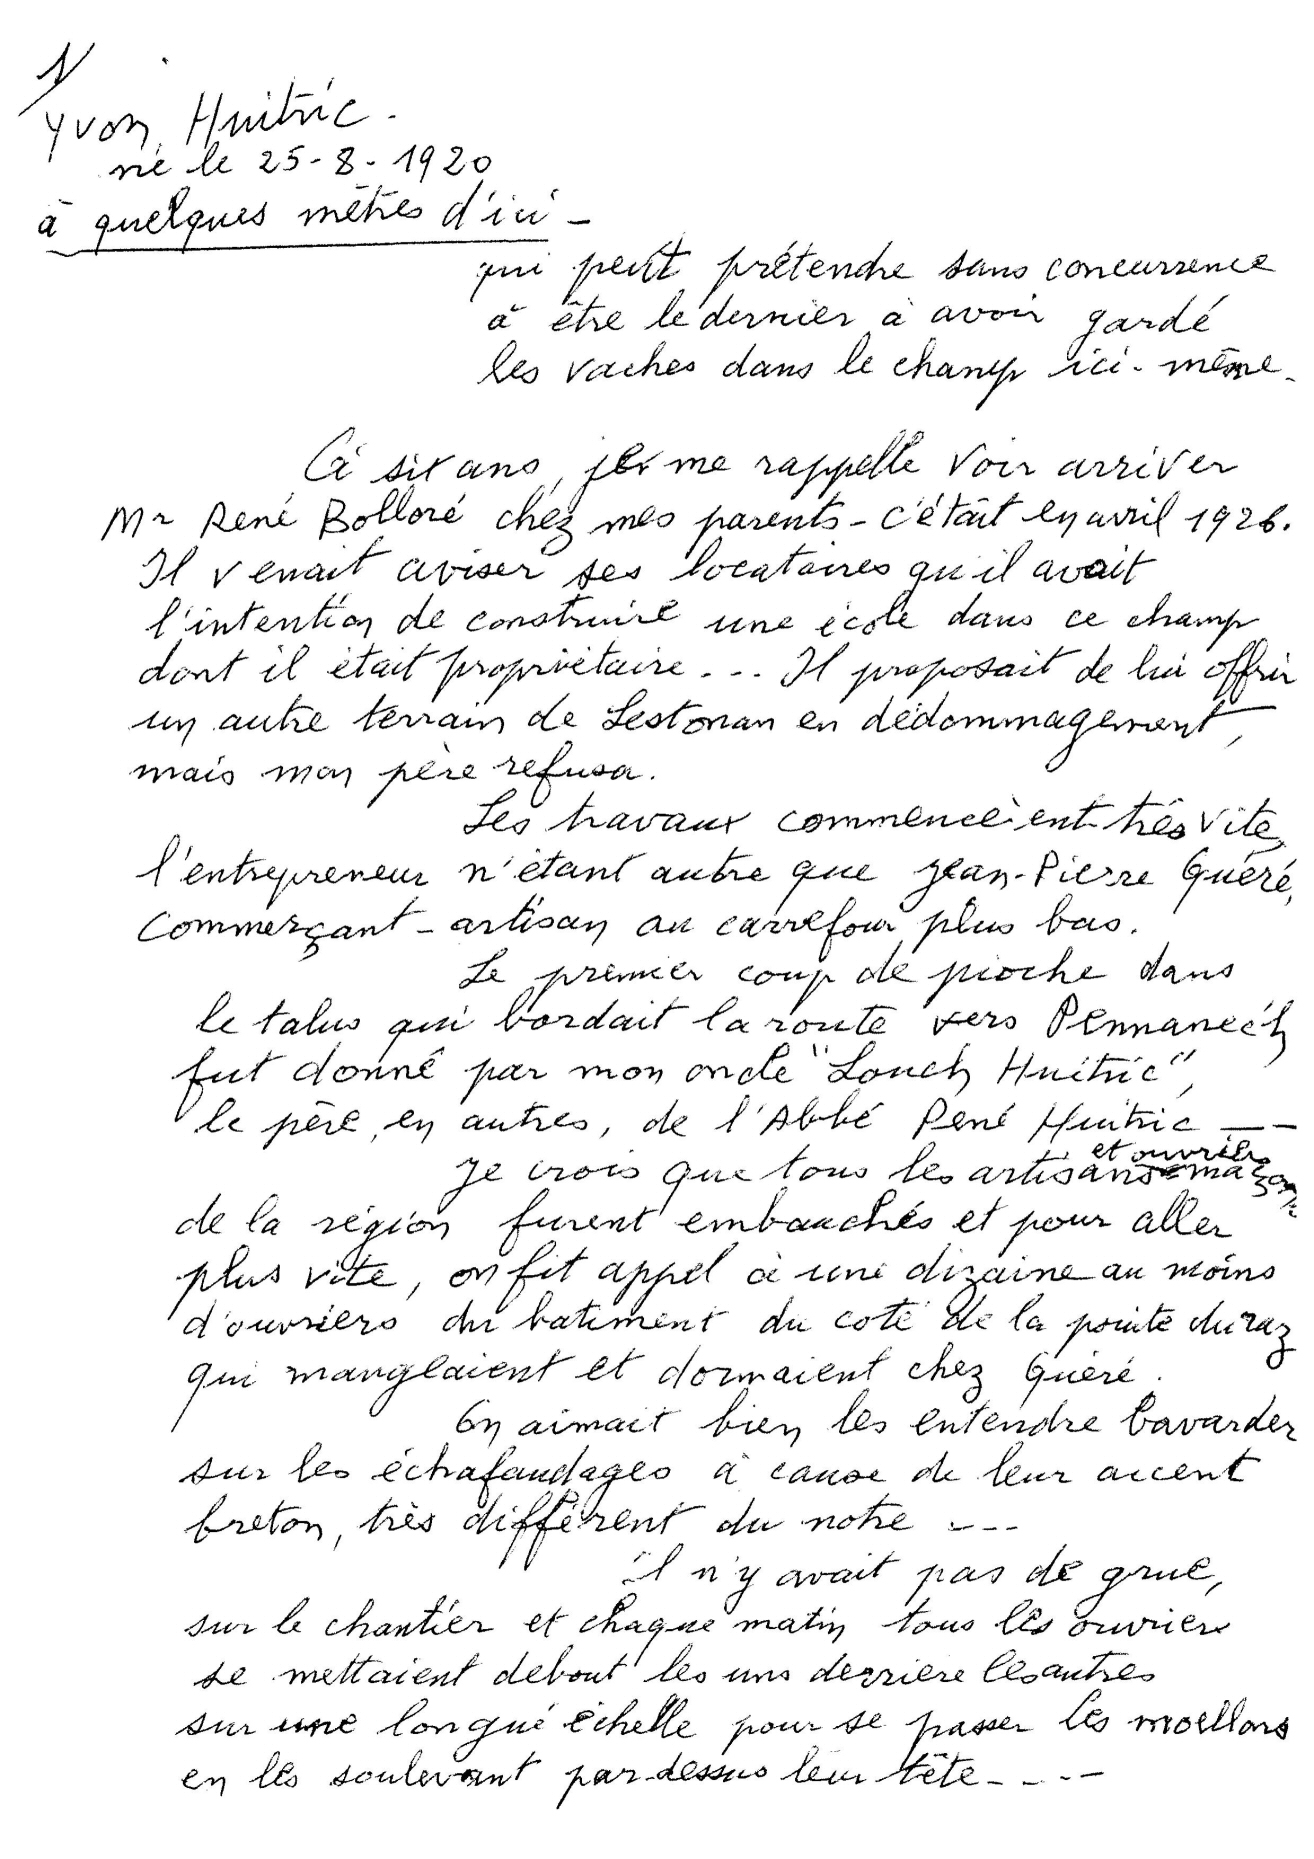 1/
Yvon Huitric.
né le 25-8-1920
à quelques mètres d'ici -
qui peut prétendre sans concurrence
à être le dernier à avoir gardé
les vaches dans le champ ici-même.
A six ans, je me rappelle voir arriver
Mr René Bolloré chez mes parents - c'était en avril 1926.
Il venait aviser ses locataires qu'il avait
l'intention de construire une école dans ce champ
dont il était propriétaire... Il proposait de lui offrir
un autre terrain de Lestonan en dédommagement,
mais mon père refusa.
Les travaux commencèrent très vite,
l'entrepreneur n'étant autre que Jean-Pierre Quéré,
commerçant-artisan au carrefour plus bas.
Le premier coup de pioche dans
le talus qui bordait la route vers Pennanec'h
fut donné par mon oncle "Louch Huitric",
le père, en autres, de l'Abbé René Huitric --
Je crois que tous les artisans et ouvriers maçons
de la région furent embauchés et pour aller
plus vite, on fit appel à une dizaine au moins
d'ouvriers du batiment du coté de la pointe du raz
qui mangeaient et dormaient chez Quéré.
On aimait bien les entendre bavarder
sur les échafaudages à cause de leur accent
breton, très différent du notre ---
il n'y avait pas de grue,
sur le chantier et chaque matin tous les ouvriers
se mettaient debout les uns derriere les autres
sur une longue échelle pour se passer les moellons
en les soulevant par-dessus leur tête----